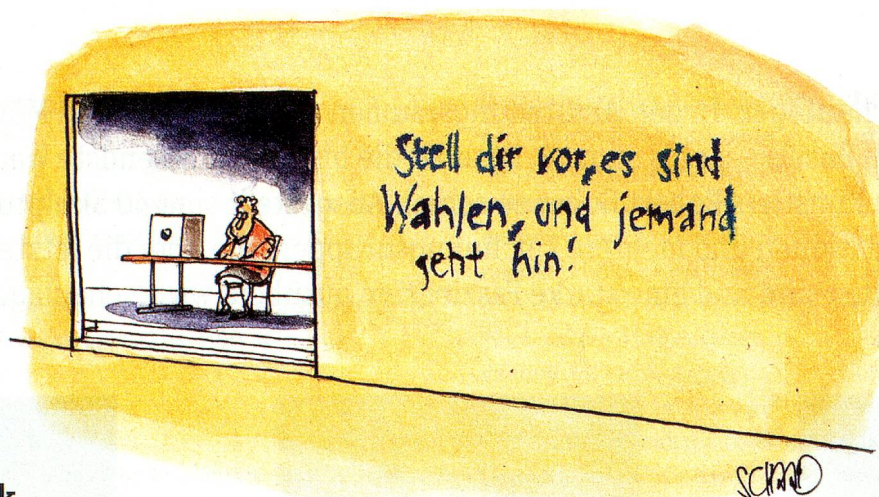 Stell dir vor, es sind
Wahlen, und jemand
geht hin!